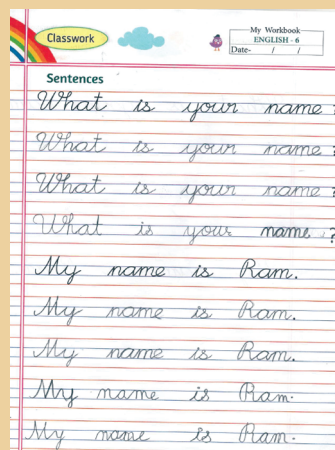 Classwork
My Workbook
ENGLISH - 6
Date- / /
Sentences
What is your name?
What is your name?
What is your name?
What is your name?
My name is Ram.
My name is Ram.
My name is Ram.
My name is Ram.
My name is Ram.